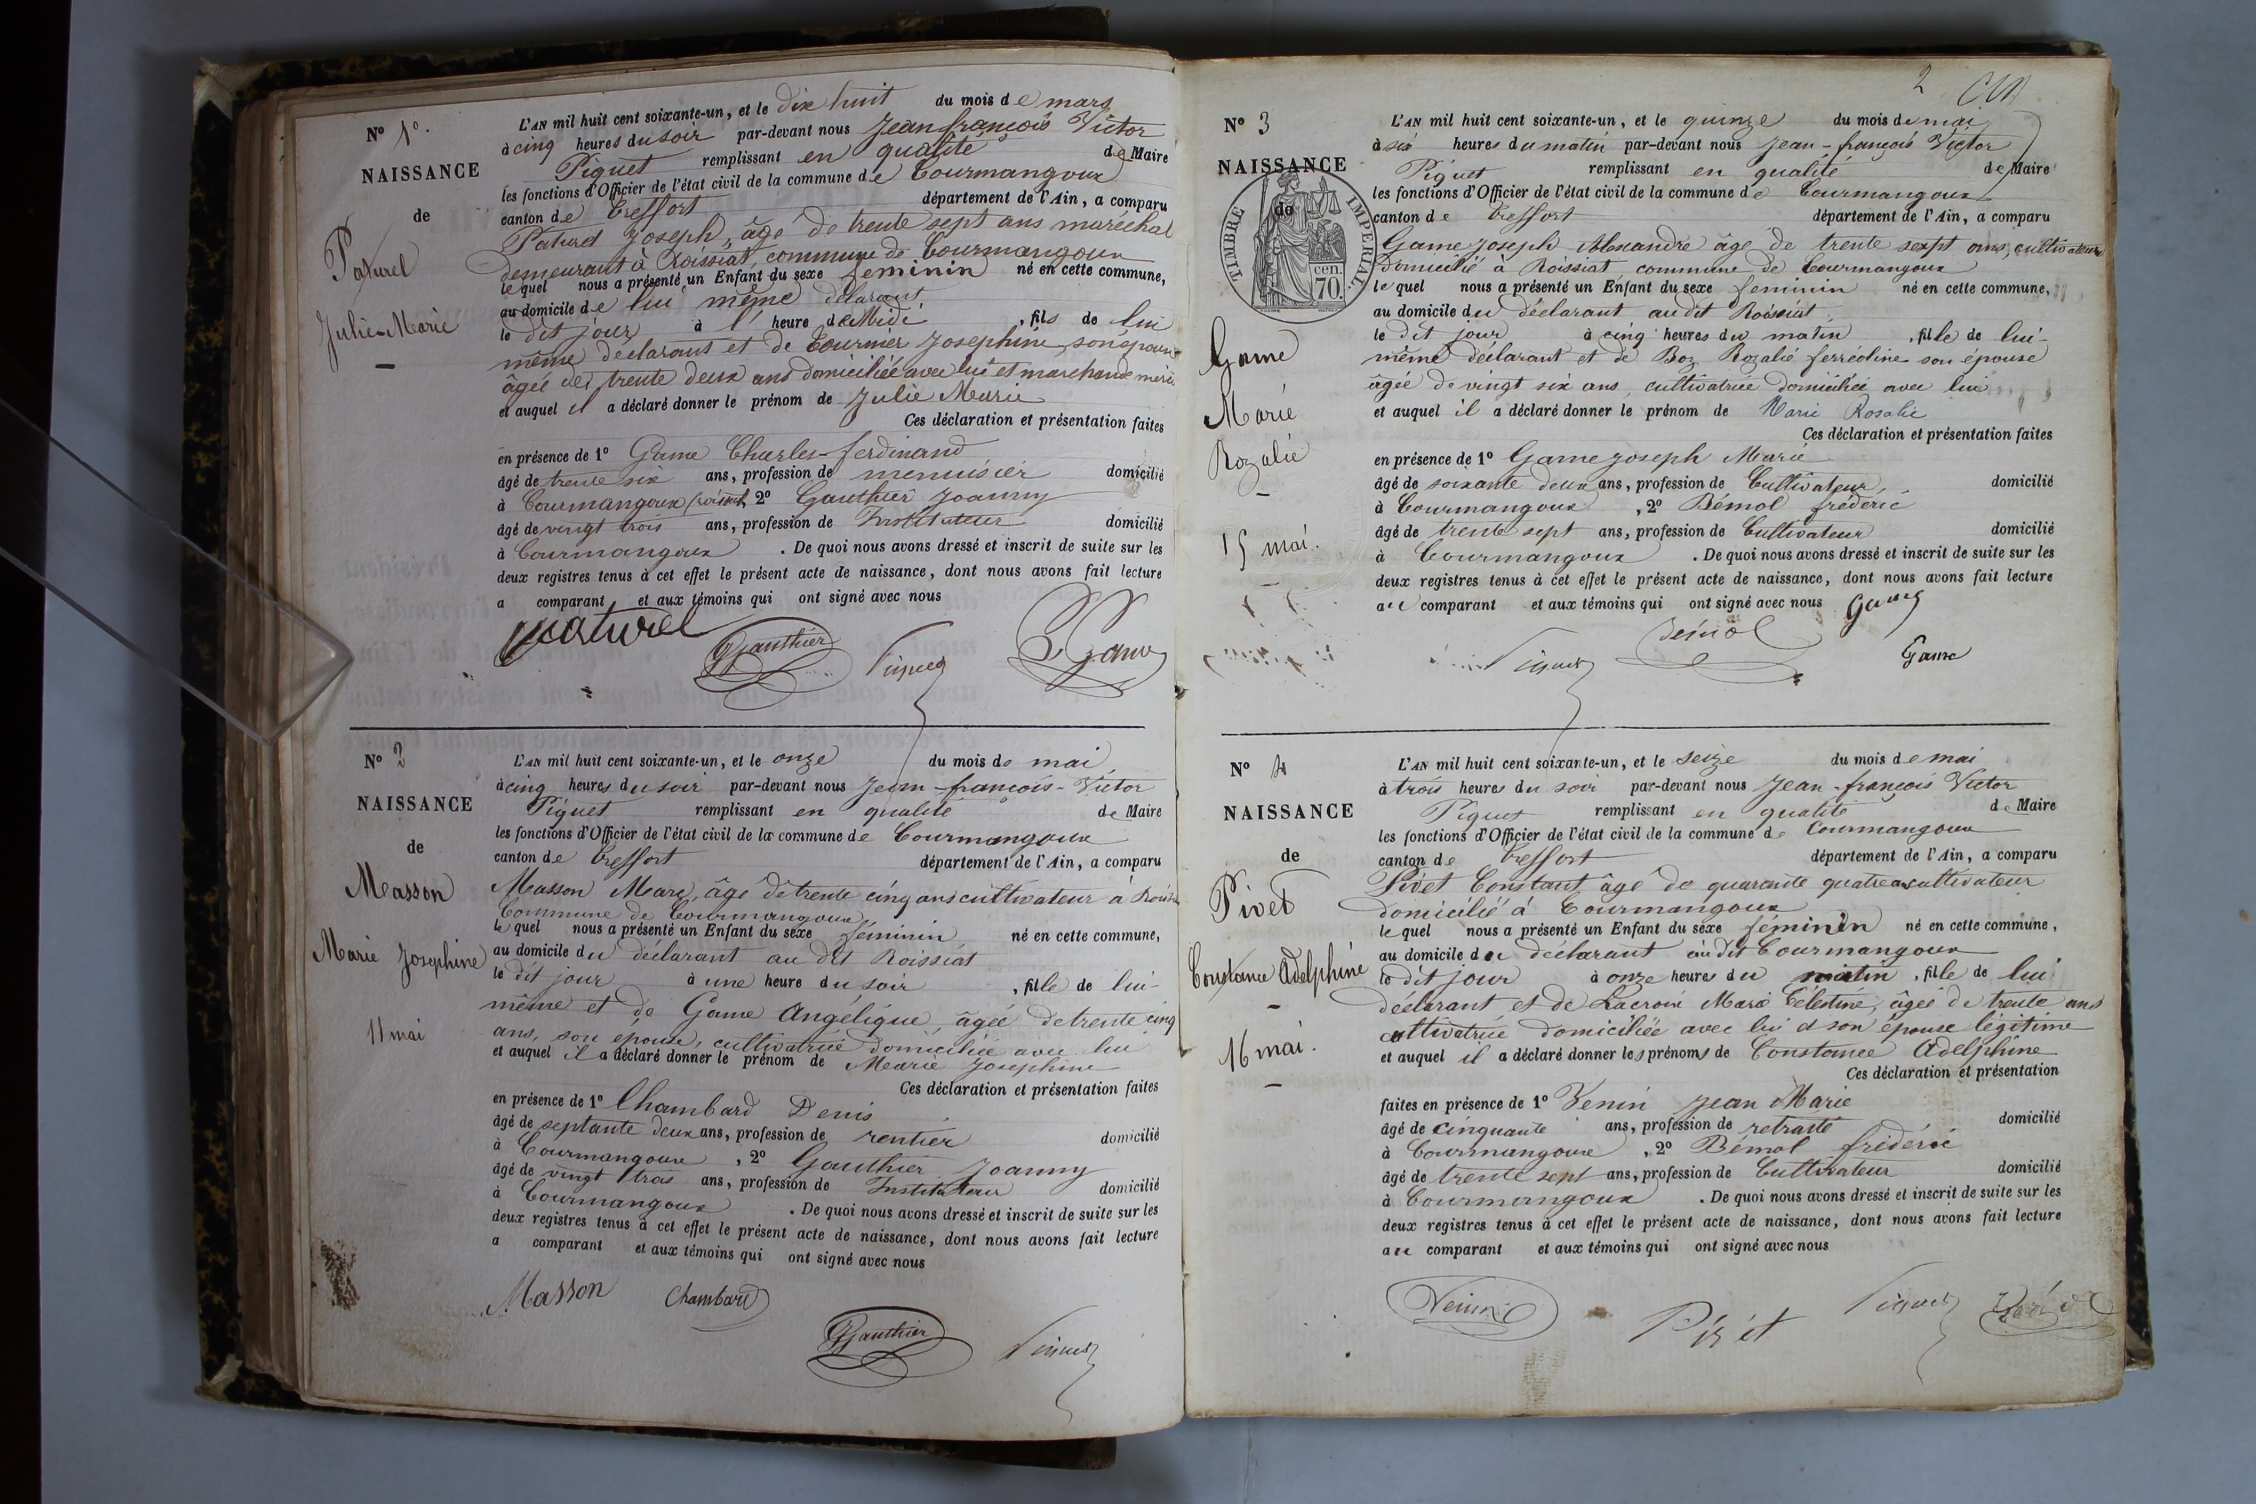 N° 1°.
NAISSANCE
de
Paturel
Julie-Marie
L'AN mil huit cent soixante-un, et le dix huit du mois de mars
à cinq heures du soir par-devant nous Jean françois Victor
Piquet remplissant en qualité de Maire
les fonctions d'Officier de l'état civil de la commune de Courmangoux
canton de Treffort département de l'Ain, a comparu
Paturel Joseph, âgé de trente sept ans maréchal
demeurant à Roissiat, commune de Courmangoux
lequel nous a présenté un Enfant du sexe féminin né en cette commune,
au domicile de lui même déclarant
le dit jour à l' heure de Midi , fils de lui
même déclarant et de Tournier Josephine, son épouse
âgée de trente deux ans domiciliée avec lui et marchande
et auquel il a déclaré donner le prénom de Julie Marie
Ces déclaration et présentation faites
en présence de 1° Game Charles-ferdinand
âgé de trente six ans, profession de menuisier domicilié
à Courmangoux 2° Gauthier Joanny
âgé de vingt trois ans, profession de Instituteur domicilié
à Courmangoux . De quoi nous avons dressé et inscrit de suite sur les
deux registres tenus à cet effet le présent acte de naissance, dont nous avons fait lecture
a comparant et aux témoins qui ont signé avec nous
Paturel Gauthier Piquet Game
N° 2
NAISSANCE
de
Masson
Marie Josephine
11 mai
L'AN mil huit cent soixante-un, et le onze du mois de mai
à cinq heures du soir par-devant nous Jean-françois-Victor
Piquet remplissant en qualité de Maire
les fonctions d'Officier de l'état civil de la commune de Courmangoux
canton de Treffort département de l'Ain, a comparu
Masson Marc, âgé de trente cinq ans cultivateur à
Commune de Courmangoux
lequel nous a présenté un Enfant du sexe féminin né en cette commune,
au domicile du déclarant au dit Roissiat
le dit jour à une heure du soir , fille de lui-
même et de Game Angélique, âgée de trente cinq
ans, son épouse, cultivatrice domiciliée avec lui
et auquel il a déclaré donner le prénom de Marie Josephine
Ces déclaration et présentation faites
en présence de 1° Chambard Denis
âgé de septante deux ans, profession de rentier domicilié
à Courmangoux , 2° Gauthier Joanny
âgé de vingt trois ans, profession de Instituteur domicilié
à Courmangoux . De quoi nous avons dressé et inscrit de suite sur les
deux registres tenus à cet effet le présent acte de naissance, dont nous avons fait lecture
a comparant et aux témoins qui ont signé avec nous
Masson Chambard
Gauthier Piquet
2
N° 3
NAISSANCE
de
TIMBRE IMPERIAL
70 cen.
Game
Marie
Rozalie
15 mai.
L'AN mil huit cent soixante-un, et le quinze du mois de mai
à six heures du matin par-devant nous Jean-françois Victor
Piquet remplissant en qualité de Maire
les fonctions d'Officier de l'état civil de la commune de Courmangoux
canton de Treffort département de l'Ain, a comparu
Game Joseph Alexandre âgé de trente sept ans, cultivateur
domicilié à Roissiat commune de Courmangoux
lequel nous a présenté un Enfant du sexe féminin né en cette commune,
au domicile du déclarant au dit Roissiat
le dit jour à cinq heures du matin , fille de lui-
même déclarant et de Boz Rozalie ferréoline son épouse
âgée de vingt six ans, cultivatrice domiciliée avec lui
et auquel il a déclaré donner le prénom de Marie Rosalie
Ces déclaration et présentation faites
en présence de 1° Game Joseph Marie
âgé de soixante deux ans, profession de Cultivateur domicilié
à Courmangoux , 2° Bémol fréderic
âgé de trente sept ans, profession de Cultivateur domicilié
à Courmangoux . De quoi nous avons dressé et inscrit de suite sur les
deux registres tenus à cet effet le présent acte de naissance, dont nous avons fait lecture
au comparant et aux témoins qui ont signé avec nous Game
Piquet Bémol Game
N° 4
NAISSANCE
de
Pivet
Constance Adelphine
16 mai.
L'AN mil huit cent soixante-un, et le seize du mois de mai
à trois heures du soir par-devant nous Jean-françois Victor
Piquet remplissant en qualité de Maire
les fonctions d'Officier de l'état civil de la commune de Courmangoux
canton de Treffort département de l'Ain, a comparu
Pivet Constant âgé de quarante quatre ans cultivateur
domicilié à Courmangoux
lequel nous a présenté un Enfant du sexe féminin né en cette commune,
au domicile du déclarant au dit Courmangoux
le dit jour à onze heures du matin , fille de lui
déclarant et de Lacroix Marie Célestine, âgée de trente ans
cultivatrice domiciliée avec lui et son épouse légitime
et auquel il a déclaré donner les prénoms de Constance Adelphine
Ces déclaration et présentation
faites en présence de 1° Venin Jean Marie
âgé de cinquante ans, profession de retraité domicilié
à Courmangoux , 2° Bémol fréderic
âgé de trente sept ans, profession de Cultivateur domicilié
à Courmangoux . De quoi nous avons dressé et inscrit de suite sur les
deux registres tenus à cet effet le présent acte de naissance, dont nous avons fait lecture
au comparant et aux témoins qui ont signé avec nous
Venin Pivet Piquet